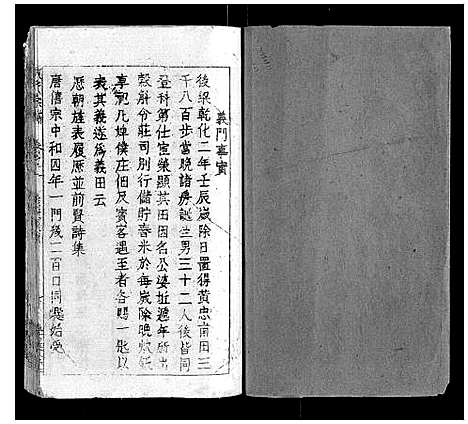 義門事實
後梁乾化二年壬辰歲除日置得黃忠甫田三
千八百步當晚諸房誕生男三十二人後皆同
登科第仕宦榮顯其田因名公婆坵遞年所出
穀斛令莊司別行儲貯舂米於每歲除晚炊飯
享祀凡婢僕庄佃及賓客遇至者各賜一匙以
表其義遂為義田云
歷朝旌表履歷並前賢詩集
唐僖宗中和四年一門後二百口同爨始受